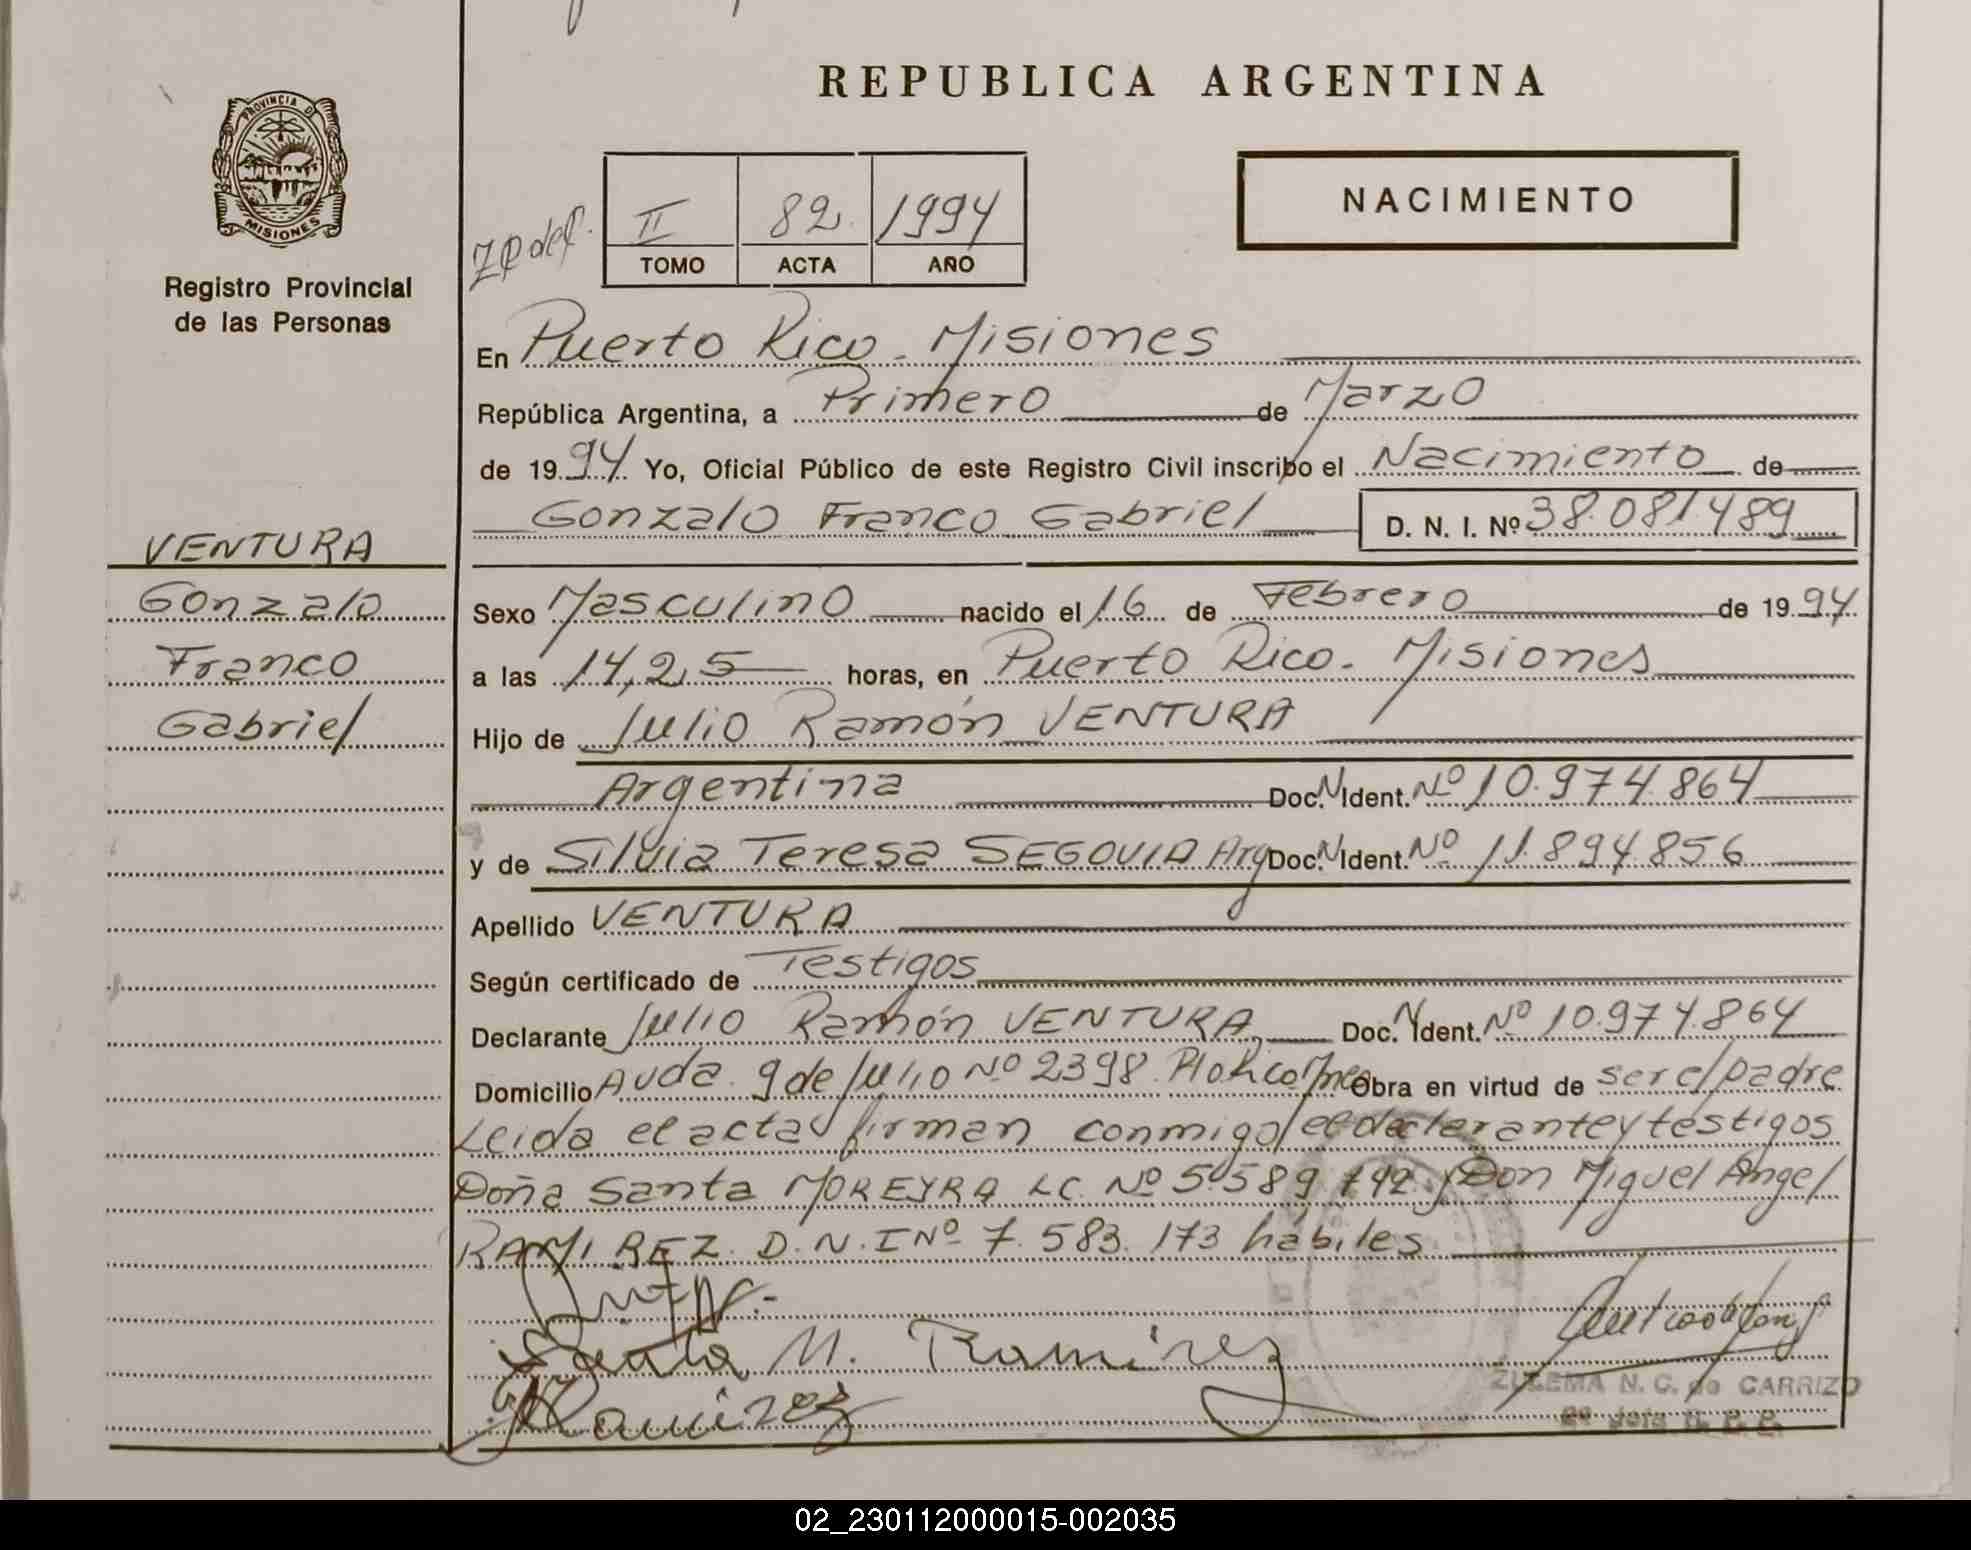 REPUBLICA ARGENTINA
PROVINCIA D
MISIONES
Registro Provincial
de las Personas
II 82 1994
TOMO ACTA AÑO
NACIMIENTO
En Puerto Rico - Misiones
República Argentina, a Primero de Marzo
de 19 94 Yo, Oficial Público de este Registro Civil inscribo el Nacimiento de
Gonzalo Franco Gabriel D. N. I. Nº 38.081.489
VENTURA
Gonzalo
Franco
Gabriel
Sexo Masculino nacido el 16 de Febrero de 19 94
a las 14,25 horas, en Puerto Rico - Misiones
Hijo de Julio Ramón VENTURA
Argentina Doc. N Ident. Nº 10.974.864
y de Silvia Teresa SEGOVIA Arg Doc. N Ident. Nº 11.894.856
Apellido VENTURA
Según certificado de Testigos
Declarante Julio Ramón VENTURA Doc. N Ident. Nº 10.974.864
Domicilio Avda. 9 de Julio Nº 2398 Pto Rico Mnes Obra en virtud de ser el padre
Leida el acta firman conmigo el declarante y testigos
Doña Santa MOREYRA LC. Nº 5.589.142 y Don Miguel Angel
RAMIREZ D.N.I Nº 7.583.173 hábiles
Santa M. Ramirez
Ramirez
ZULEMA N. C. de CARRIZO
02_230112000015-002035